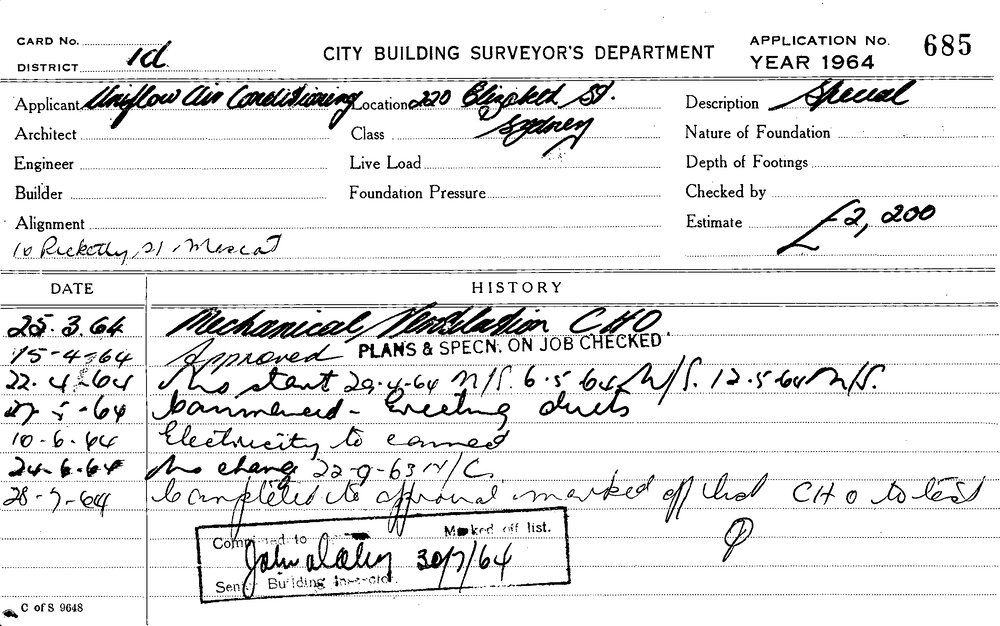 CARD No.
DISTRICT 1d
CITY BUILDING SURVEYOR'S DEPARTMENT
APPLICATION No. 685
YEAR 1964
Applicant Uniflow Air Conditioning Location 220 Elizabeth St. Description Special
Architect Class Sydney Nature of Foundation
Engineer Live Load Depth of Footings
Builder Foundation Pressure Checked by
Alignment Estimate £2,200
10 St. Mascot
DATE HISTORY
25.3.64 Mechanical Ventilation CHO.
15-4-64 Approved PLANS & SPECN. ON JOB CHECKED
22.4-64 No start 29-4-64 N/S. 6-5-64 N/S. 12-5-64 N/S.
-64 Commenced - Erecting ducts
10-6-64 Electricity to
24-6-64 No change N/C.
28-7-64 Completed to approval marked off list CHO to test
to Marked off list.
30/7/64
Building
C of S 9648